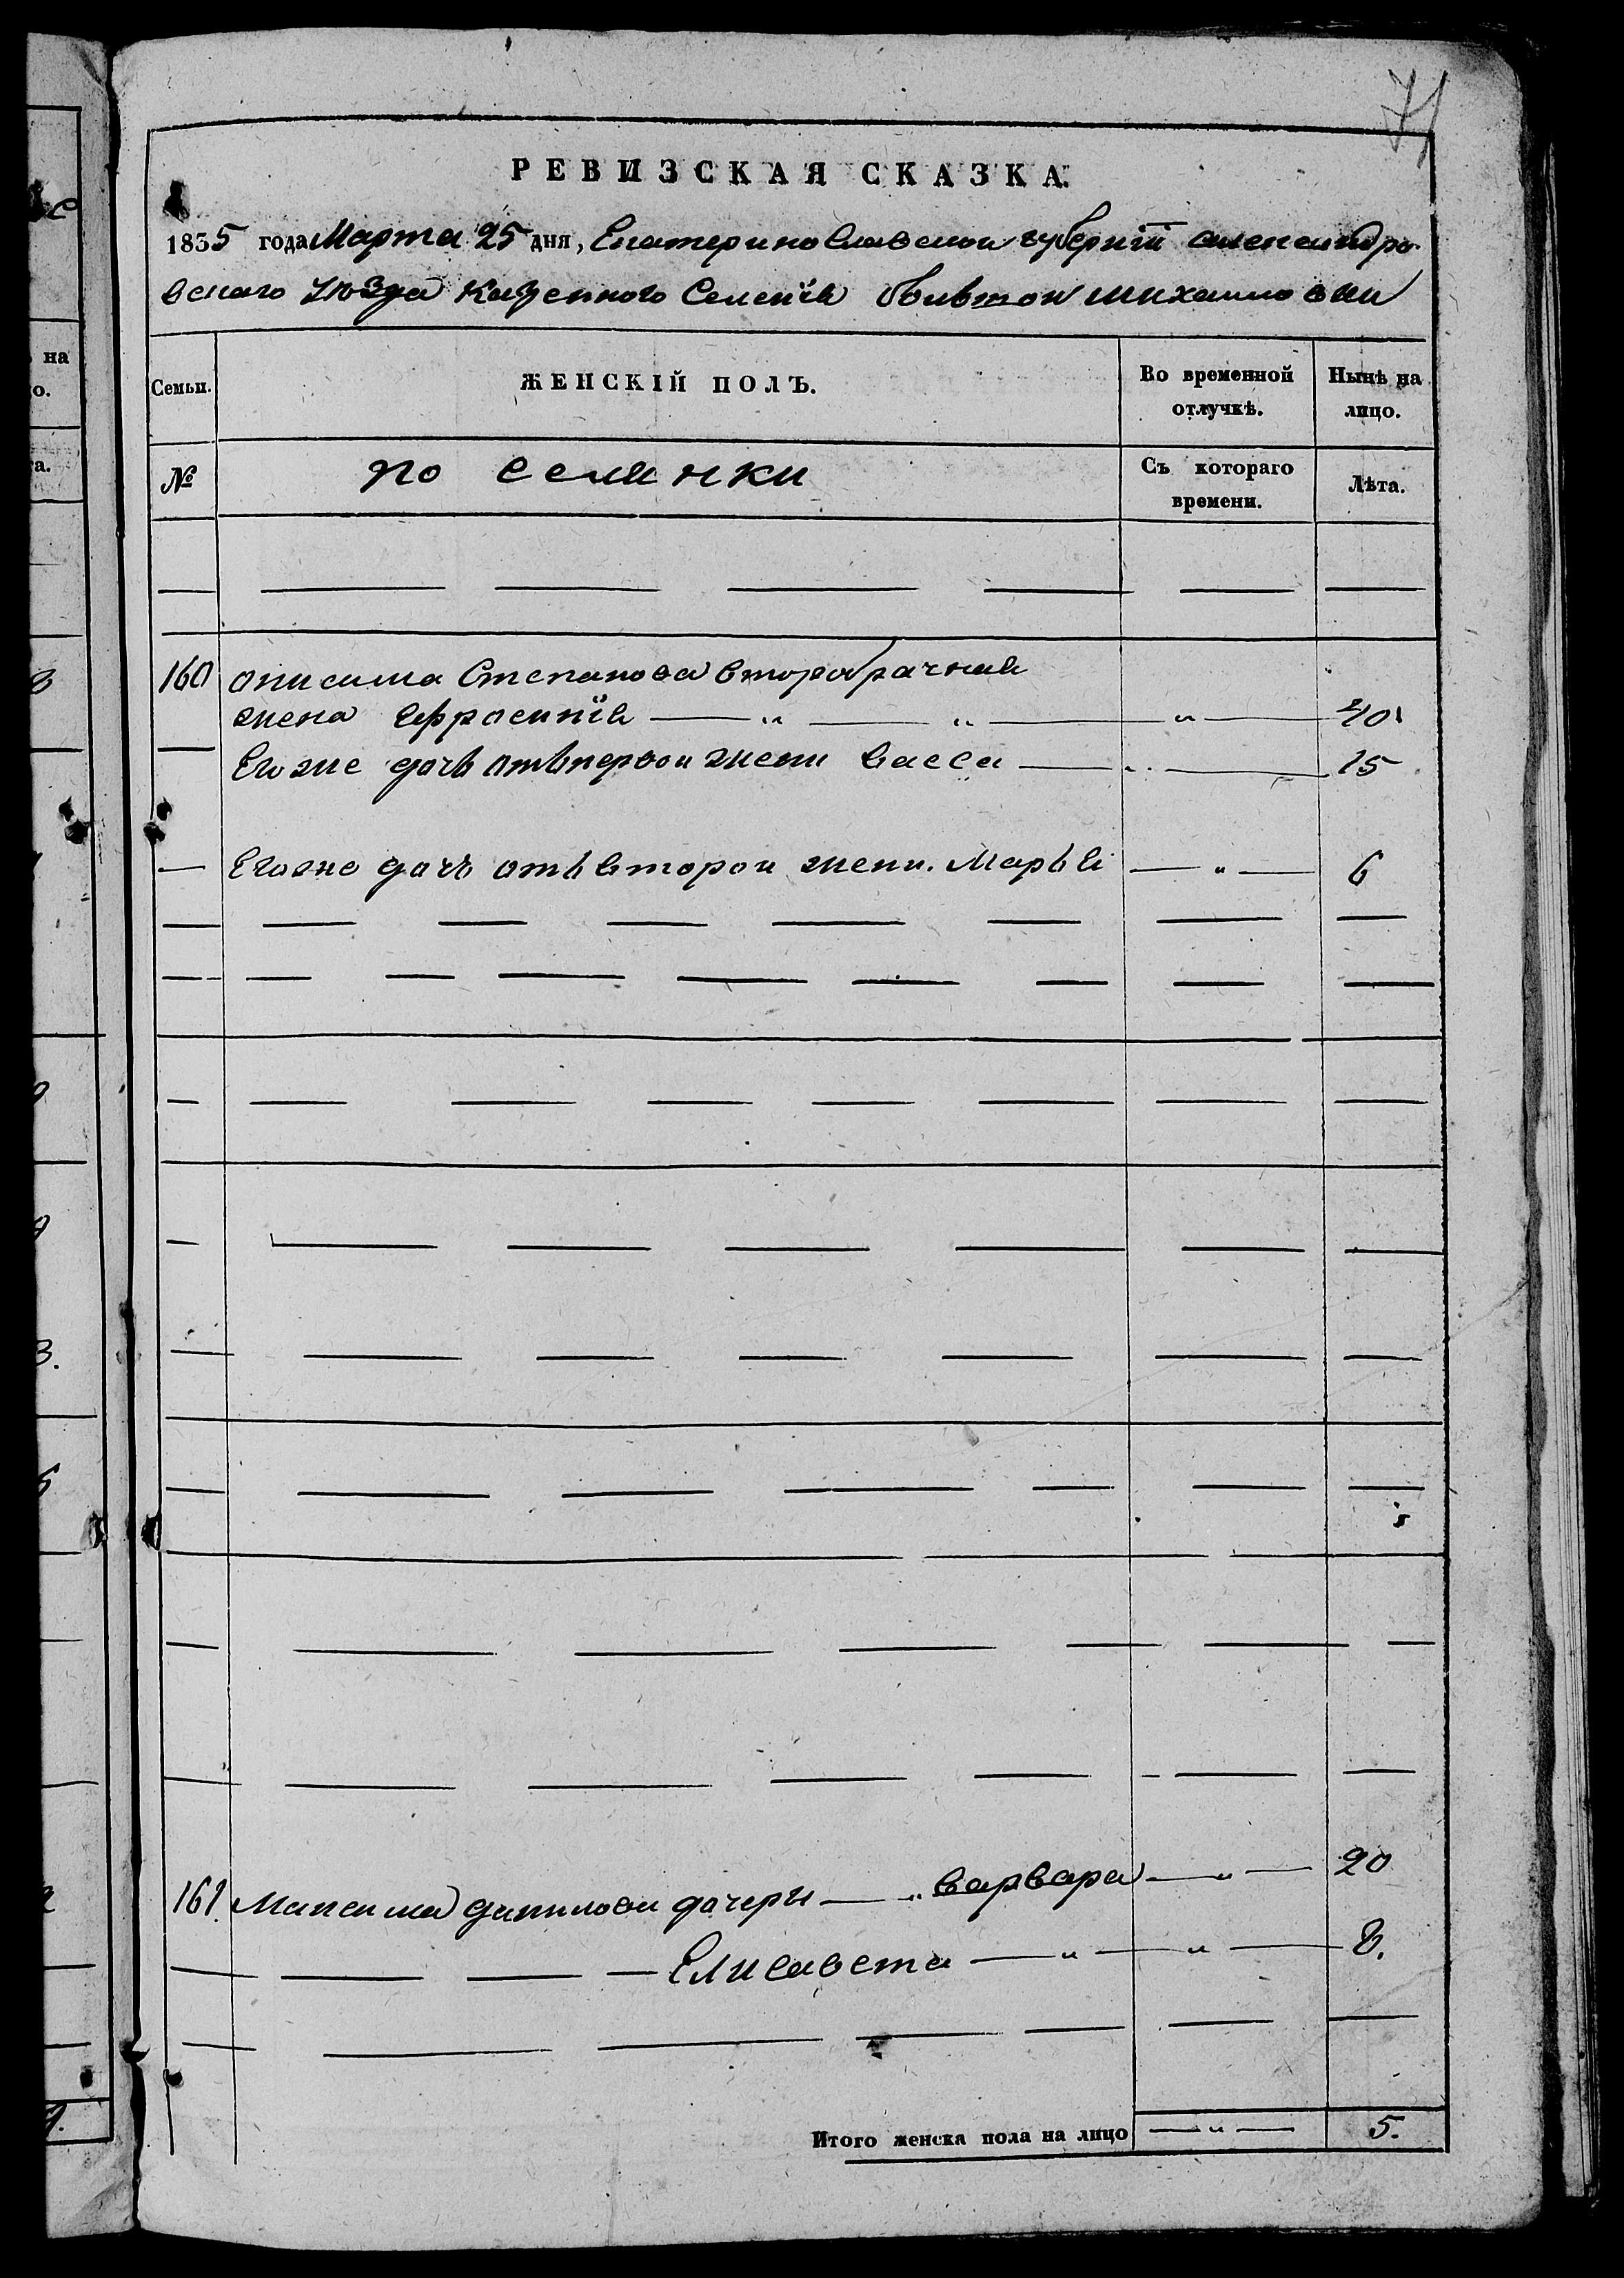 71
РЕВИЗСКАЯ СКАЗКА.
1835 года Марта 25 дня, Екатеринославской губернїи александро-
вскаго уѣзда Казенного Селенїя больтой михаиловки
Семьи. ЖЕНСКІЙ ПОЛЪ. Во временной отлучкѣ. Нынѣ на лицо.
№ по селянки Съ котораго времени. Лѣта.
160 описима Степанова второбрачная
жена ефросинїя — „ — „ — „ — 40
Егоже дочь отъ первои жени васса — „ — 15
— Егоже дочъ отъ второи жени. Марья — „ — 6
161. Максима данилова дочеры — „ варвара — „ — 20
Елисавета — „ — „ — 8.
Итого женска пола на лицо — „ — 5.